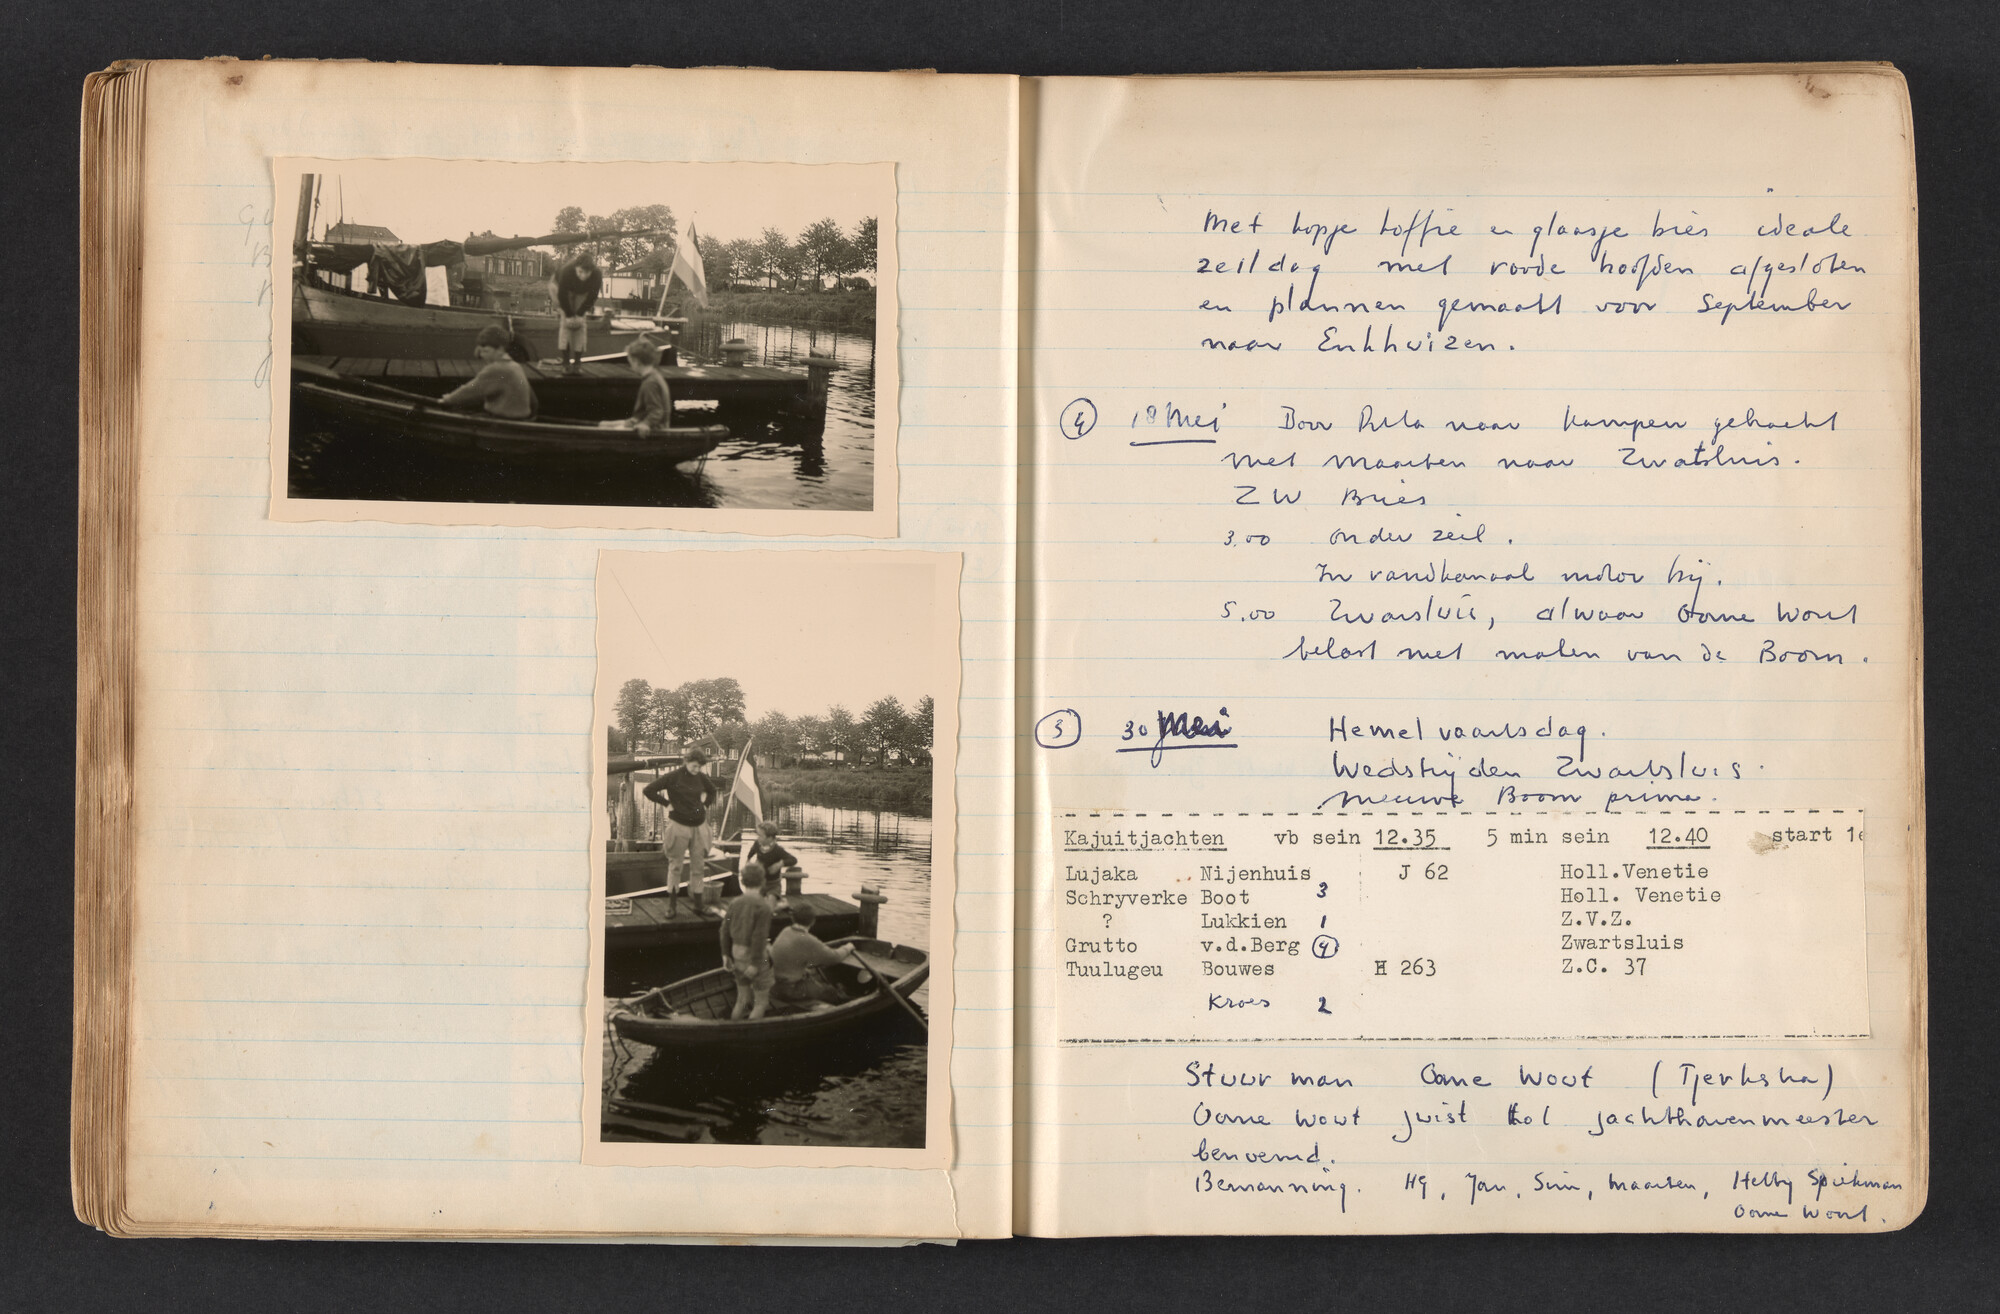 Met kopje koffie en glaasje bies ideale
zeildag met roode hoofden afgesloten
en plannen gemaakt voor September
naar Enkhuizen.
4 18 Mei Door Rita naar Kampen gebracht
met Maarten naar Zwatsluis.
ZW Bries
3.00 onder zeil.
In randkanaal motor bij.
5.00 Zwarsluis, alwaar Oome Wout
belast met maken van de Boom.
3 30 Mei Hemelvaartsdag.
Wedstrijden Zwartsluis.
nieuwe Boom prima.
Kajuitjachten vb sein 12.35 5 min sein 12.40 start 1e
Lujaka .. Nijenhuis J 62 Holl.Venetie
Schryverke Boot 3 Holl. Venetie
? Lukkien 1 Z.V.Z.
Grutto v.d.Berg 4 Zwartsluis
Tuulugeu Bouwes H 263 Z.C. 37
Kroes 2
Stuurman Oome Wout (Tjerkstra)
Oome Wout juist tot jachthavenmeester
benoemd.
Bemanning. Hy, Jan, Sim, Maarten, Hetty Spiekman
Oome Wout.